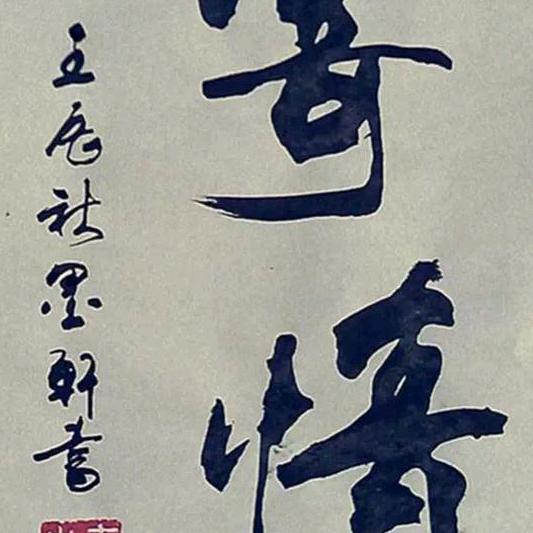 寄情
壬辰秋墨軒書